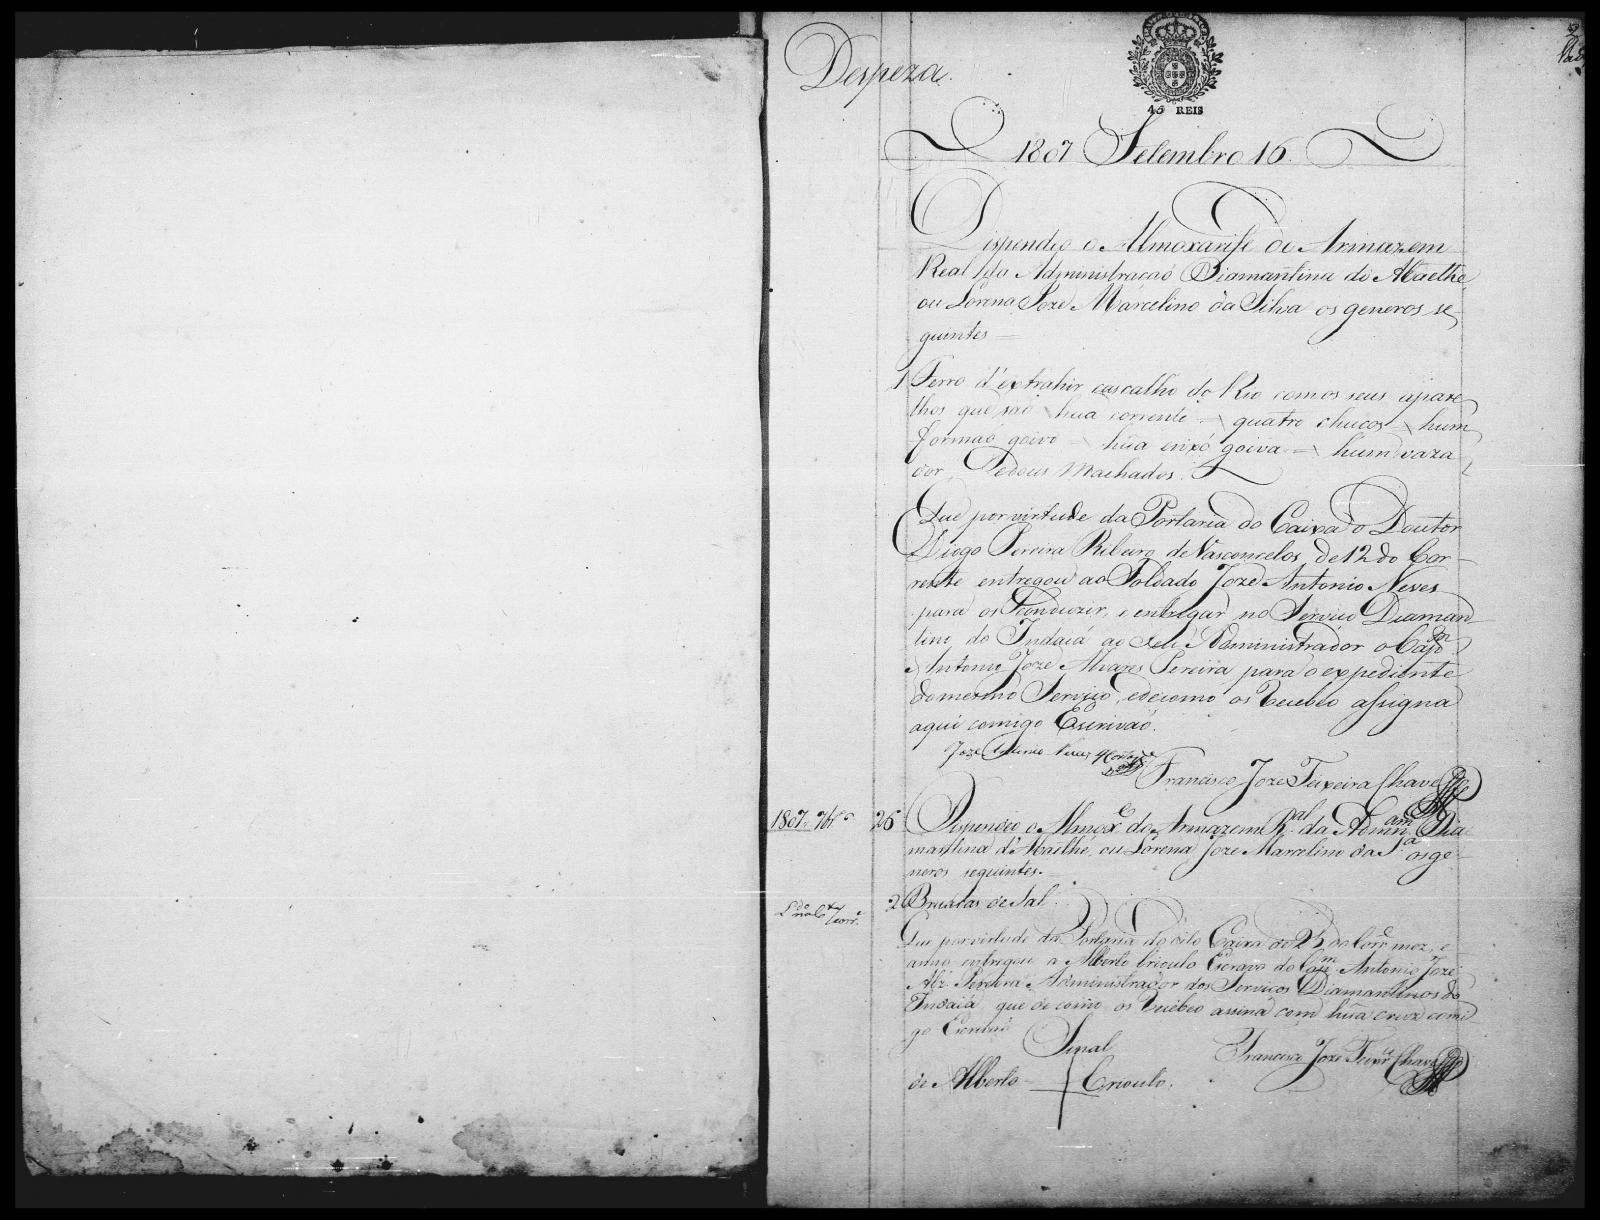 Despeza.
45 REIS
1807 Setembro 16.
Dispendeo o Almoxarife do Armazem
Real da Administraçaõ Diamantina de Abaethe,
ou Lorena Joze Marcelino da Silva os generos se
guintes =
1 Ferro d'extrahir cascalho do Rio com os seus apare
lhos que saõ huã corrente = quatro chuços = hum
formaõ goivo = huã enxó goiva = hum vaza
dor e dous Machados.
Que por virtude da Portaria do Caixa o Doutor
Diogo Pereira Ribeiro de Vasconcelos, de 12 do Cor-
rente entregou ao Soldado Joze Antonio Neves
para os conduzir, e entregar no Serviço Diaman
tino do Indaiá ao seu Administrador o Capm
Antonio Joze Alvares Pereira para o expediente
do mesmo Serviço, e de como os recebeo assigna
aqui comigo Escrivaõ.
Joze Antonio Neves
Francisco Joze Teixeira Chaves
1807. 7bro 26 Dispendeo o Almoxe do Armazem Ral da Admam Dia
mantina d'Abaethe, ou Lorena Joze Marcelino da Sa os ge-
neros seguintes.
2 Bruacas de Sal.
Que por virtude da Portaria do dito Caixa de 23 do Corre mez, e
anno entregou a Alberto Crioulo Escravo do Capm Antonio Joze
Alz Pereira Administrador dos Serviços Diamantinos do
Indaiá que de como os recebeo assina com huã cruz comi
go Escrivaõ
Sinal
Francisco Joze Teixra Chaves
de Alberto Crioulo.